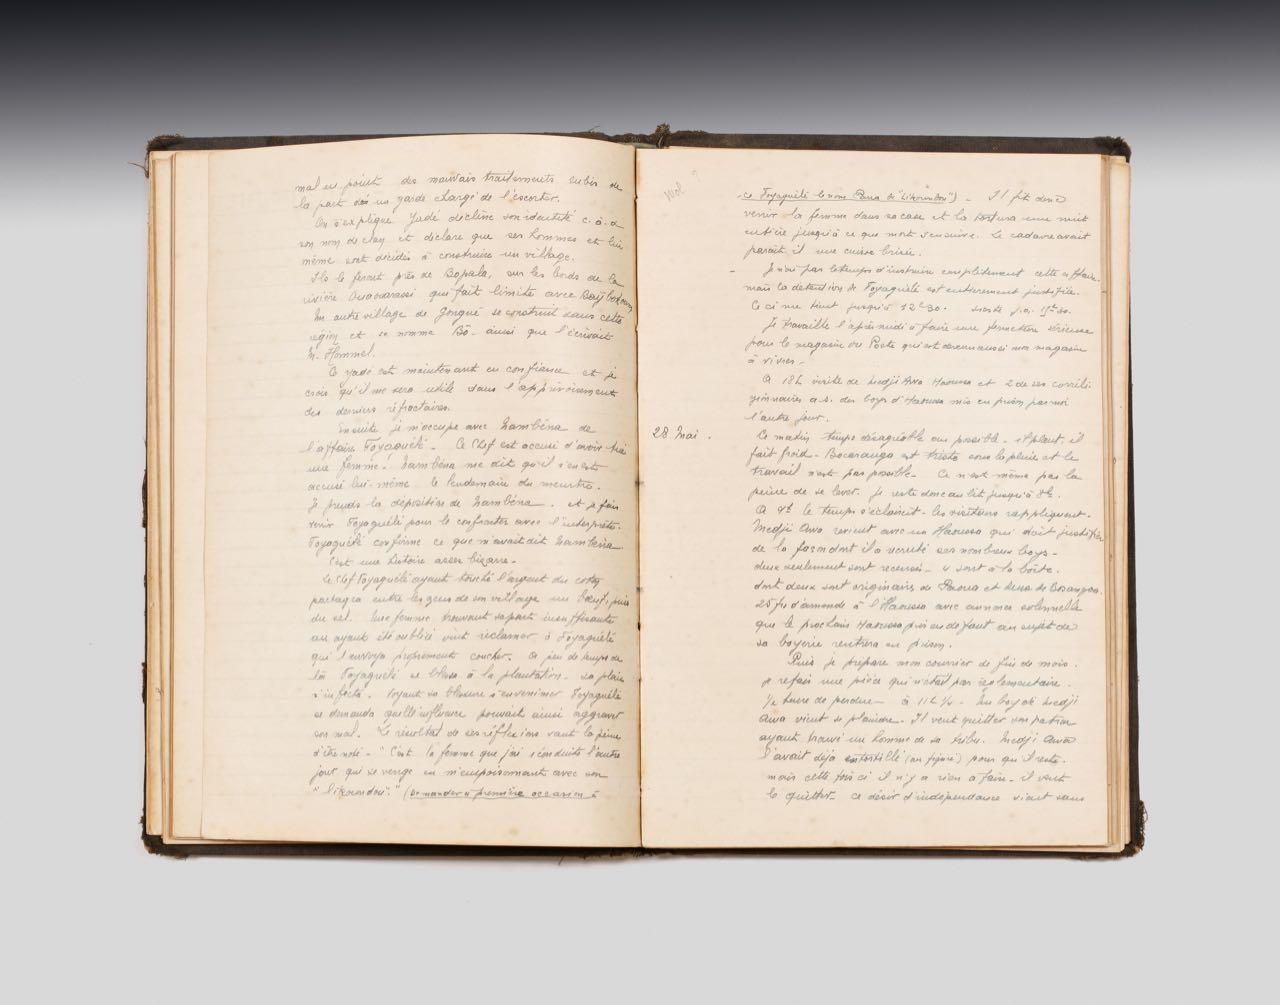 mal en point des mauvais traitements subis de
la part d'un garde chargé de l'escorter.
On s'explique. Yadé décline son identité c.à.d
son nom de clan et déclare que ses hommes et lui
même sont décidés à construire un village.
Ils le feront près de Bopala, sur les bords de la
rivière qui fait limite avec Baïbokoum
Un autre village de Gongué se construit dans cette
région et se nomme Bô - ainsi que l'écrivait
M. Hommel.
Ce Yadé est maintenant en confiance et je
crois qu'il me sera utile dans l'apprivoisement
des derniers réfractaires.
Ensuite je m'occupe avec Zambéna de
l'affaire Toyaguélé. Ce Chef est accusé d'avoir tué
une femme. Zambéna me dit qu'il s'en est
accusé lui-même le lendemain du meurtre.
Je prends la déposition de Zambéna. et je fais
venir Toyaguélé pour le confronter avec l'interprète.
Toyaguélé confirme ce que m'avait dit Zambéna
C'est une histoire assez bizarre.
Le Chef Toyaguélé ayant touché l'argent du coton
partagea entre les gens de son village un boeuf, puis
du sel. Une femme trouvant sa part insuffisante
ou ayant été oubliée vint réclamer à Toyaguélé
qui l'envoya proprement coucher. A peu de temps de
là Toyaguélé se blessa à la plantation. sa plaie
s'infecta. Voyant sa blessure s'envenimer Toyaguélé
se demanda quelle influence pouvait ainsi aggraver
son mal. Le résultat de ses réflexions vaut la peine
d'être noté - "C'est la femme que j'ai éconduite l'autre
jour qui se venge en m'empoisonnant avec son
"likoundou"." (Demander à première occasion à
ce Toyaguélé le nom Pana de "Likoundou") - Il fit donc
venir la femme dans sa case et la tortura une nuit
entière jusqu'à ce que mort s'ensuive. Le cadavre avait
paraît il une cuisse brisée.
- Je n'ai pas le temps d'instruire complètement cette affaire.
mais la détention de Toyaguélé est entièrement justifiée.
Ceci me tient jusqu'à 12h30. sieste j.q. 15h30.
Je travaille l'après midi à faire une fermeture sérieuse
pour le magasin du Poste qui est devenu aussi mon magasin
à vivres -
A 18h visite de Medji Awa Haoussa et 2 de ses coreli-
gionnaires a.s. des boys d'Haoussa mis en prison par moi
l'autre jour.
28 Mai. Ce matin temps désagréable au possible - il pleut, il
fait froid - Bocaranga est triste sous la pluie et le
travail n'est pas possible - Ce n'est même pas la
peine de se lever. je reste donc au lit jusqu'à 8h.
A 9h le temps s'éclaircit - les visiteurs rappliquent.
Medji Awa revient avec un Haoussa qui doit justifier
de la façon dont il a recruté ses nombreux boys -
deux seulement sont recensés - 4 sont à la boîte.
dont deux sont originaires de Paoua et deux de Bozangoa.
25 frs d'amende à l'Haoussa avec annonce solennelle
que le prochain Haoussa pris en défaut au sujet de
sa boyerie rentrera en prison.
Puis je prépare mon courrier de fin de mois.
je refais une pièce qui n'était pas réglementaire.
1/2 heure de perdue - à 11h 1/2 - Un boy de Medji
Awa vient se plaindre - Il veut quitter son patron
ayant trouvé un homme de sa tribu. Medji Awa
l'avait déjà entortillé (au figuré) pour qu'il reste.
mais cette fois ci il n'y a rien à faire - il veut
le quitter - ce désir d'indépendance vient sans